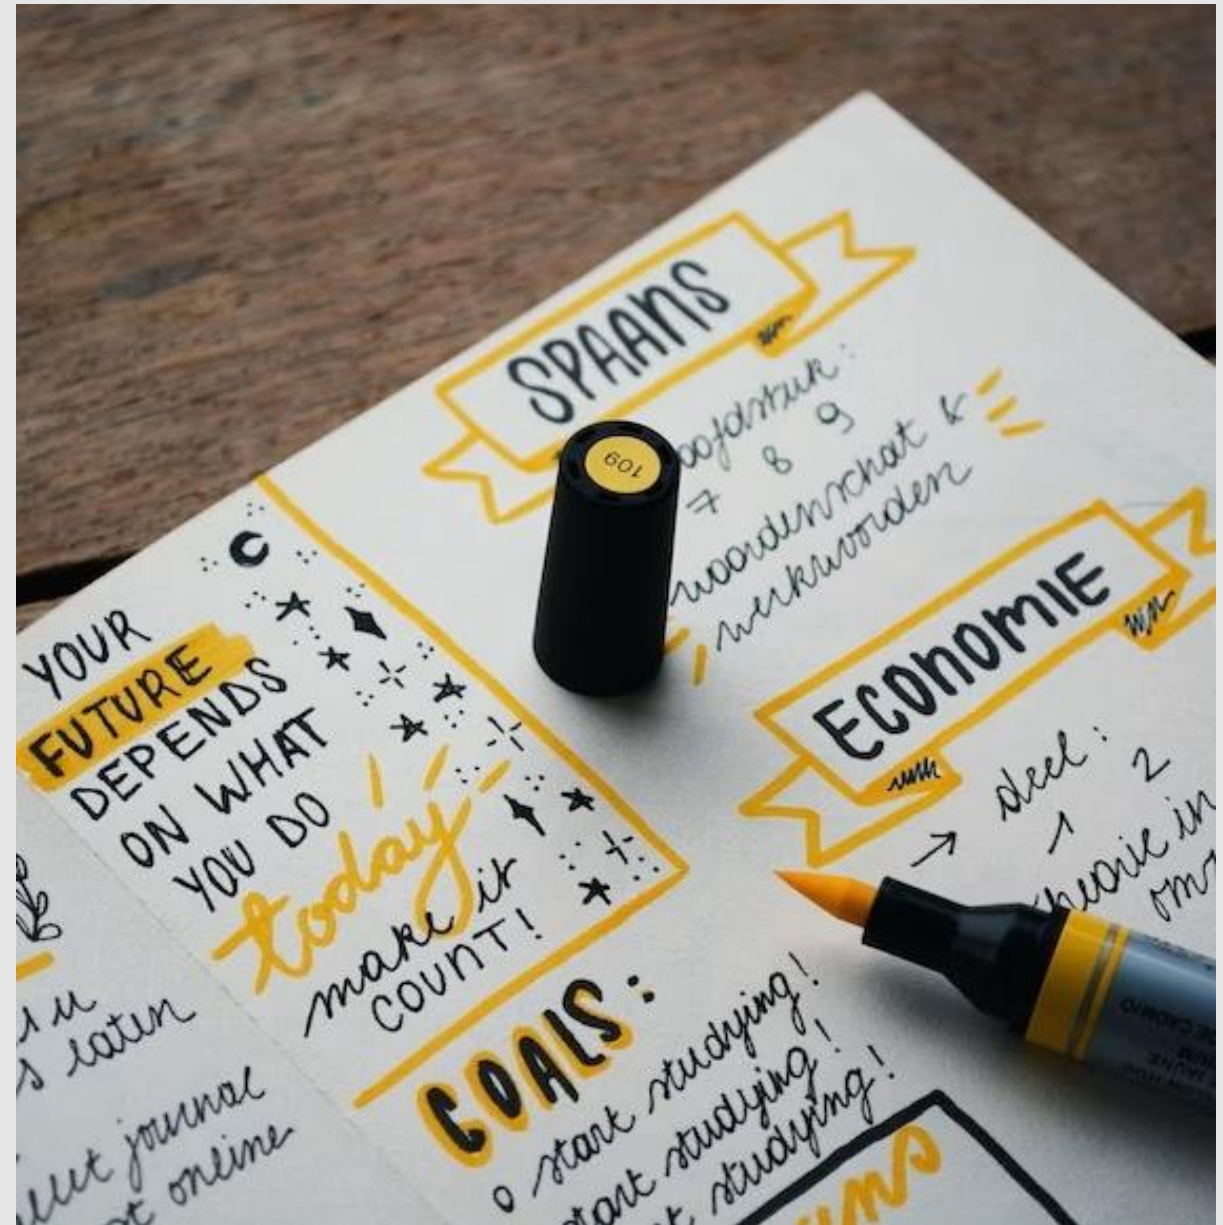 SPAANS
7 8 9
woordenschat &
werkwoorden
109
ECONOMIE
→ deel:
1 2
YOUR
FUTURE
DEPENDS
ON WHAT
YOU DO
today
make it
COUNT!
GOALS:
o start studying!
start studying!
studying!
laten
journal
online